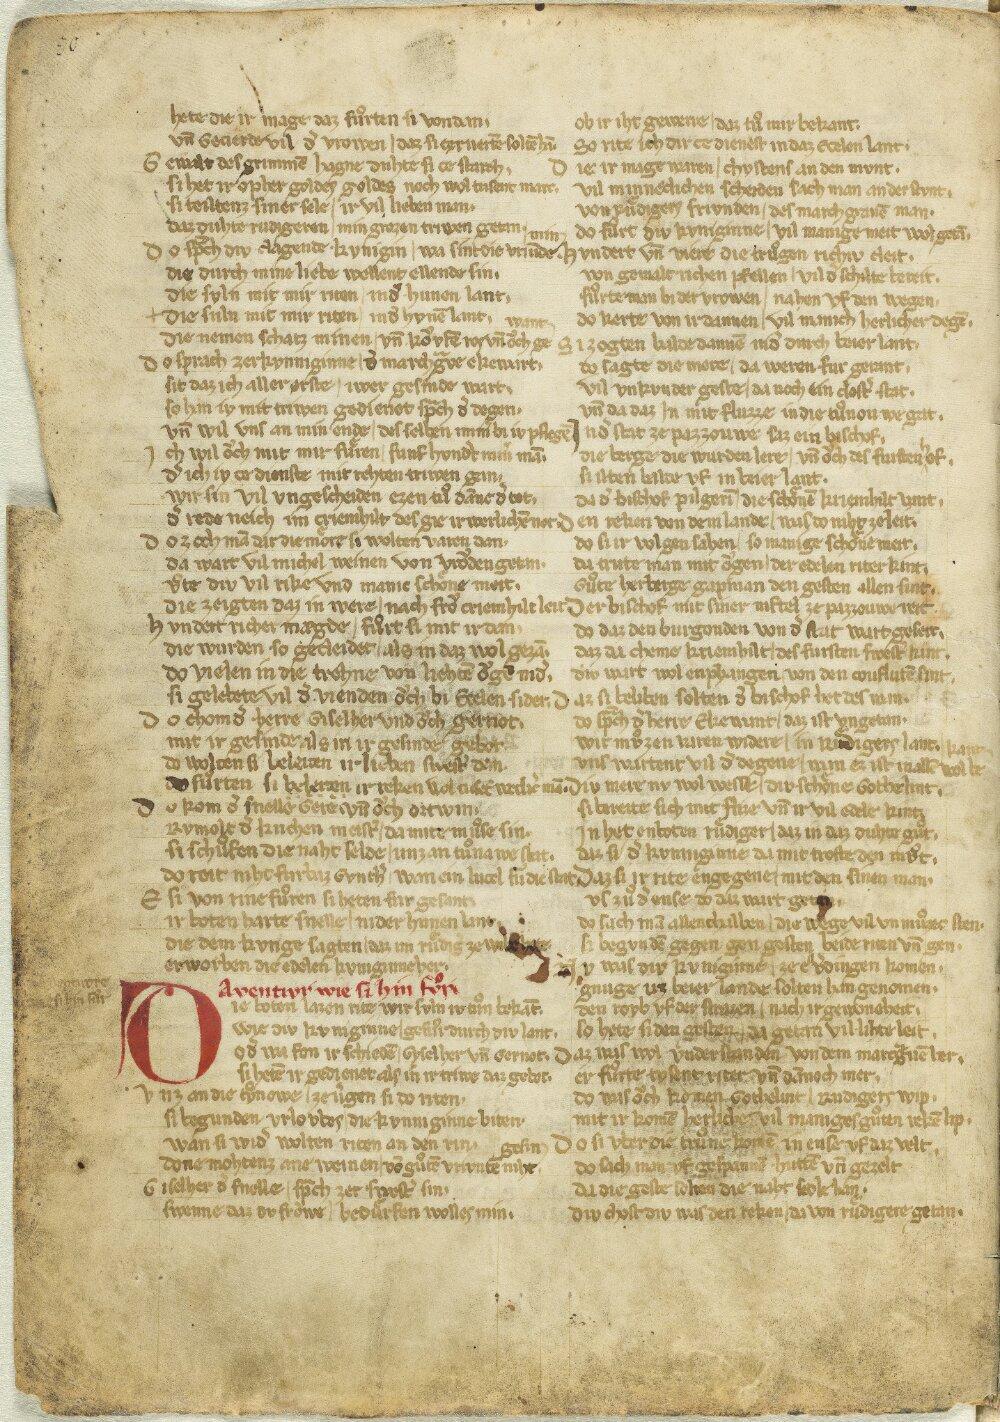 hete die ir mage daz fůrten si von dan.
vñ Gecierde vil d̓ vrowen / daz si
Gewalt des grimmē hagne duhte si ce starch.
si het ir opher goldes goldes noch wol tusent marc.
si teiltenz siner sele / ir vil lieben man.
daz duhte rudigeren / min grozen triwen getan.
Do sp̄ch div chygende kvnigin / wa sint die vrunde min
die durch mine liebe wellent ellende sin.
die svln mit mir riten / in d̓ hunen lant.
+ die suln mit mir riten / in d̓ hvnē lant.
die nemen schatz minen / vn̄ kōvfē ros vn̄ ǒch ge want
Do sprach zer kvnniginne / d̓ marchgͣve ekewart.
sit daz ich aller erste / iwer gesinde wart.
so han iv mit triwen gedienet sp̄ch d̓ degen.
vn̄ wil vns an min ende / des selben imm̄ bi iv pflegē
Ich wil ǒch mit mir fůren / funf hvnd̓t min mā.
d̓ ich iv ce dienste mit rehten triwen gan.
wir sin vil vngescheiden ezen tů dāne d̓ tot.
d̓ rede neich im criemhilt des gie ir werlichē not.
Do zoch mā dar die more si wolten varen dan.
da wart vil michel weinen von vrōden getan.
v̓te div vil riche vnd manic schǒne meit.
die zeigten daz in were / nach frō criemhilt leit
Hvndert richer mægde / fůrt si mit ir dan.
die wurden so gecleidet / als in daz wol gezā.
do vielen in die trehne von liehtē ǒgē nid̓.
si gelebete vil d̓ vrenden ǒch bi Etelen sider.
Do chom d̓ herre Giselher vnd ǒch gernot.
mit ir gesinde als in ir gesinde gebot.
do wolten si beleiten ir lieben swest̓ den
do fůrten si beleiten ir reken wol tusēt werlich̓ mā.
Do kom d̓ snelle Gere vn̄ ǒch ortwin.
Rvmolt d̓ kuchen meist̓ / da mite mv̊se sin.
si schůfen die naht selde / unz an tůnawe stat.
do reit niht furbaz Gvnth̓ / wan ein lucel fur die stat.
E si von rine fůren si heten fur gesant.
ir boten harte snelle / in der hůnen lant
die dem kvnige sagten / daz im rudig̓ ze
erworben die edelen kvniginne her.
Aventivr wie si hin fv̊r
Die boten lazen rite wir svln iv tůn bekāt.
wie div kvniginne / gefůr durch div lant.
Od̓ wa fon ir schiedē / Gyselher vn̄ Gernot.
si hetē ir gedienet als in ir triwe daz gebot.
Vnz an die tůnowe / ze v̓gen si do riten.
si begunden vrlovbes / die kvnniginne biten.
wan si wid̓ wolten riten an den rin. gesin
done mohtenz ane weinen vō gůtē vrivntē niht.
Giselher d̓ snelle / sp̄ch zer swest̓ sin.
swenne daz dv frōwe / bedurfen wolles min.
ob ir iht gewerre / daz tů mir bekant.
So rite ich dir ce dienest in daz Etelen lant.
Die ir mage waren / chvstens an den mvnt.
vil minneclichen scheiden sach man an der stvnt.
von Rudigers frivnden / des marchgravē man.
do fůrt div kvniginne / vil manige meit wol getā.
Hvndert vn̄ viere die trůgen richiv cleit.
von gemalt richen pfellen / vil d̓ schilte breit.
fůrte man bi der vrowen / nahen vf den wegen.
do kerte von ir dannen / vil manich herlicher degē.
Si zogten balde dannē nid̓ durch beier lant.
do sagte die mere / da weren fur gerant.
vil vnkvnder geste / da noch ein clost̓ stat.
vn̄ da daz In mit fluzze in die tůnou we gat.
In d̓ stat ze pazzouwe saz ein bischof.
die berge die wurden lere / vn̄ ǒch des fursten hof.
si ilten balde vf in beier lant.
da d̓ bischof pilgerī / die schǒnē kriemhilt vant.
Den reken von dem lande / was do niht ze leit.
do si ir volgen sahen / so manige schǒne meit.
da trute man mit ǒgen / der edelen riter kint.
Gůte herberge gap man den gesten allen sint.
Der bischof mit siner niftel ze pazzouwe reit.
do daz den burgonden von d̓ stat wart geseit.
daz da chome kriemhilt / des fursten swest̓ kint.
div wart wol enphangen von den coufluten sint.
Daz si beliben solten d̓ bischof het des wan.
do sp̄ch d̓ herre Ekewart / daz ist vngetan.
wir mv̊zen varen widere / in Rudigers lant.
vns wartent vil d̓ degene / wan ez ist in allē wol bekant
Div mere nv wol weste / div schǒne Gothelint.
si bereite sich mit flize vn̄ ir vil edele kint
In het enboten rudiger / daz in daz duhte gůt.
daz si d̓ kvnniginne da mit troste den mv̊t.
Daz si ir rite engegene / mit den sinen man.
vf zů d̓ ense do daz wart getan.
do sach mā allenthalben / die wege vil vnmůzec sten.
si begvndē gegen gen gesten beide riten vn̄ gen.
Nv was div kvniginne / ze ev̓dingen komen.
gnuge uz beier lande solten han genomen.
den rovb vf der strazen / nach ir gewoneheit.
so hete si den gesten / da getan vil lihte leit.
Daz was wol vnderstanden von dem marcgͣuē her.
er fůrte tvsent riter vn̄ dānoch mer.
do was ǒch komen Gothelint / Rudigers wip.
mit ir komē herliche / vil maniges gůten rekē lip.
Do si vber die trůne komē / in ense vf daz velt.
do sach man vf gespannē hutē vn̄ gezelt
da die geste solten die naht selde han.
div chost div was den reken / da von rudigere getan.